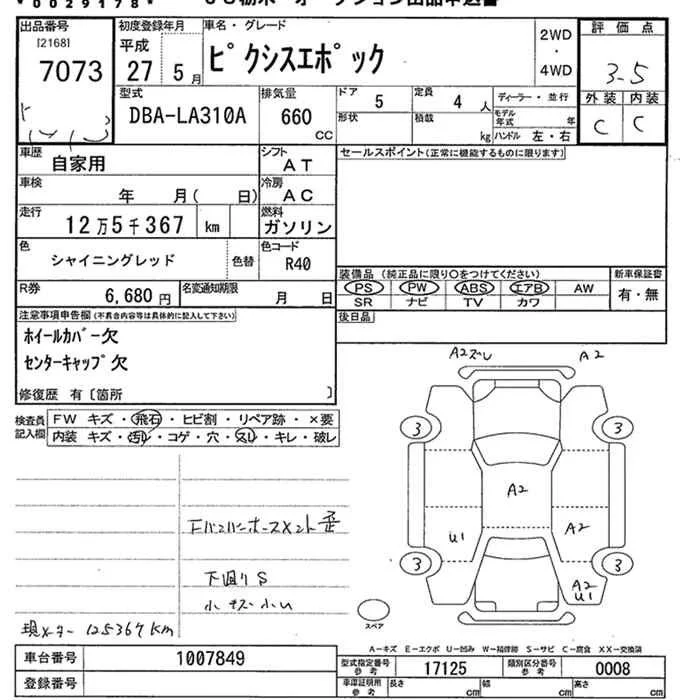 *0029178*
出品番号
[2168]
7073
初度登録年月
平成
27 5月
車名・グレード
ピクシスエポック
2WD
・
4WD
評価点
3-5
外装 内装
C C
型式
DBA-LA310A
排気量
660 CC
ドア 5
形状
定員 4 人
積載 kg
ディーラー・並行
モデル年式 年
ハンドル 左・右
車歴 自家用
シフト AT
セールスポイント(正常に機能するものに限ります)
車検 年 月( 日)
冷房 AC
走行 12万5千367 km
燃料 ガソリン
色 シャイニングレッド
色替
色コード R40
装備品(純正品に限り○をつけてください)
新車保証書
有・無
PS PW ABS エアB AW
SR ナビ TV カワ
R券 6,680円
名変通知期限 月 日
後日品
注意事項申告欄(不具合内容等は具体的に記入して下さい)
ホイールカバー欠
センターキャップ欠
修復歴 有〔箇所 〕
検査員記入欄
FW キズ・飛石・ヒビ割・リペア跡・×要
内装 キズ・汚レ・コゲ・穴・スレ・キレ・破レ
A2ズレ A2
3 3
A2
U1 A2
3 3
A2
U1
下廻りS
小キズ小U
現メーター 125367km
スペア
A-キズ E-エクボ U-凹み W-補修跡 S-サビ C-腐食 XX-交換済
車台番号 1007849
登録番号
型式指定番号 参考 17125
類別区分番号 参考 0008
車庫証明用 参考
長さ cm
幅 cm
高さ cm